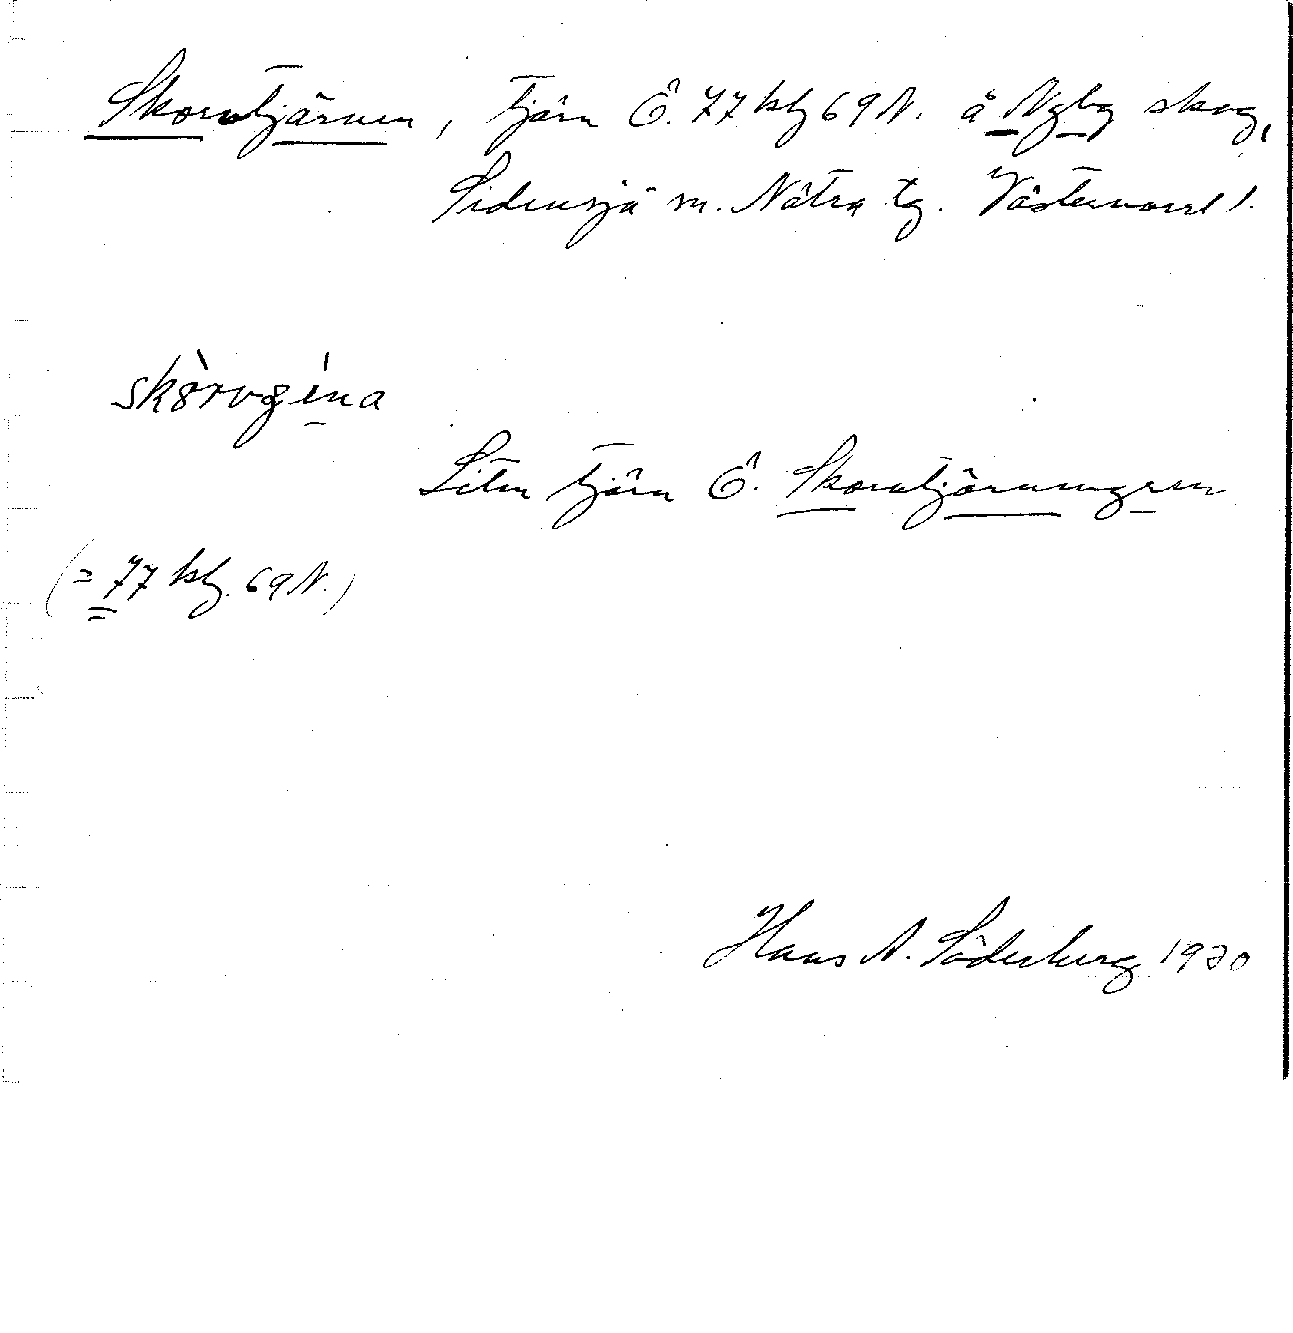 Skorvtjärnen, tjärn Ö. 77 blg 69 N. å Nyby skog,
Sidensjö sn. Nätra tg. Västernorrl l.
Liten tjärn Ö. Skorvtjärnmyren
(= 77 blg. 69 N.)
Hans A. Söderberg 1930